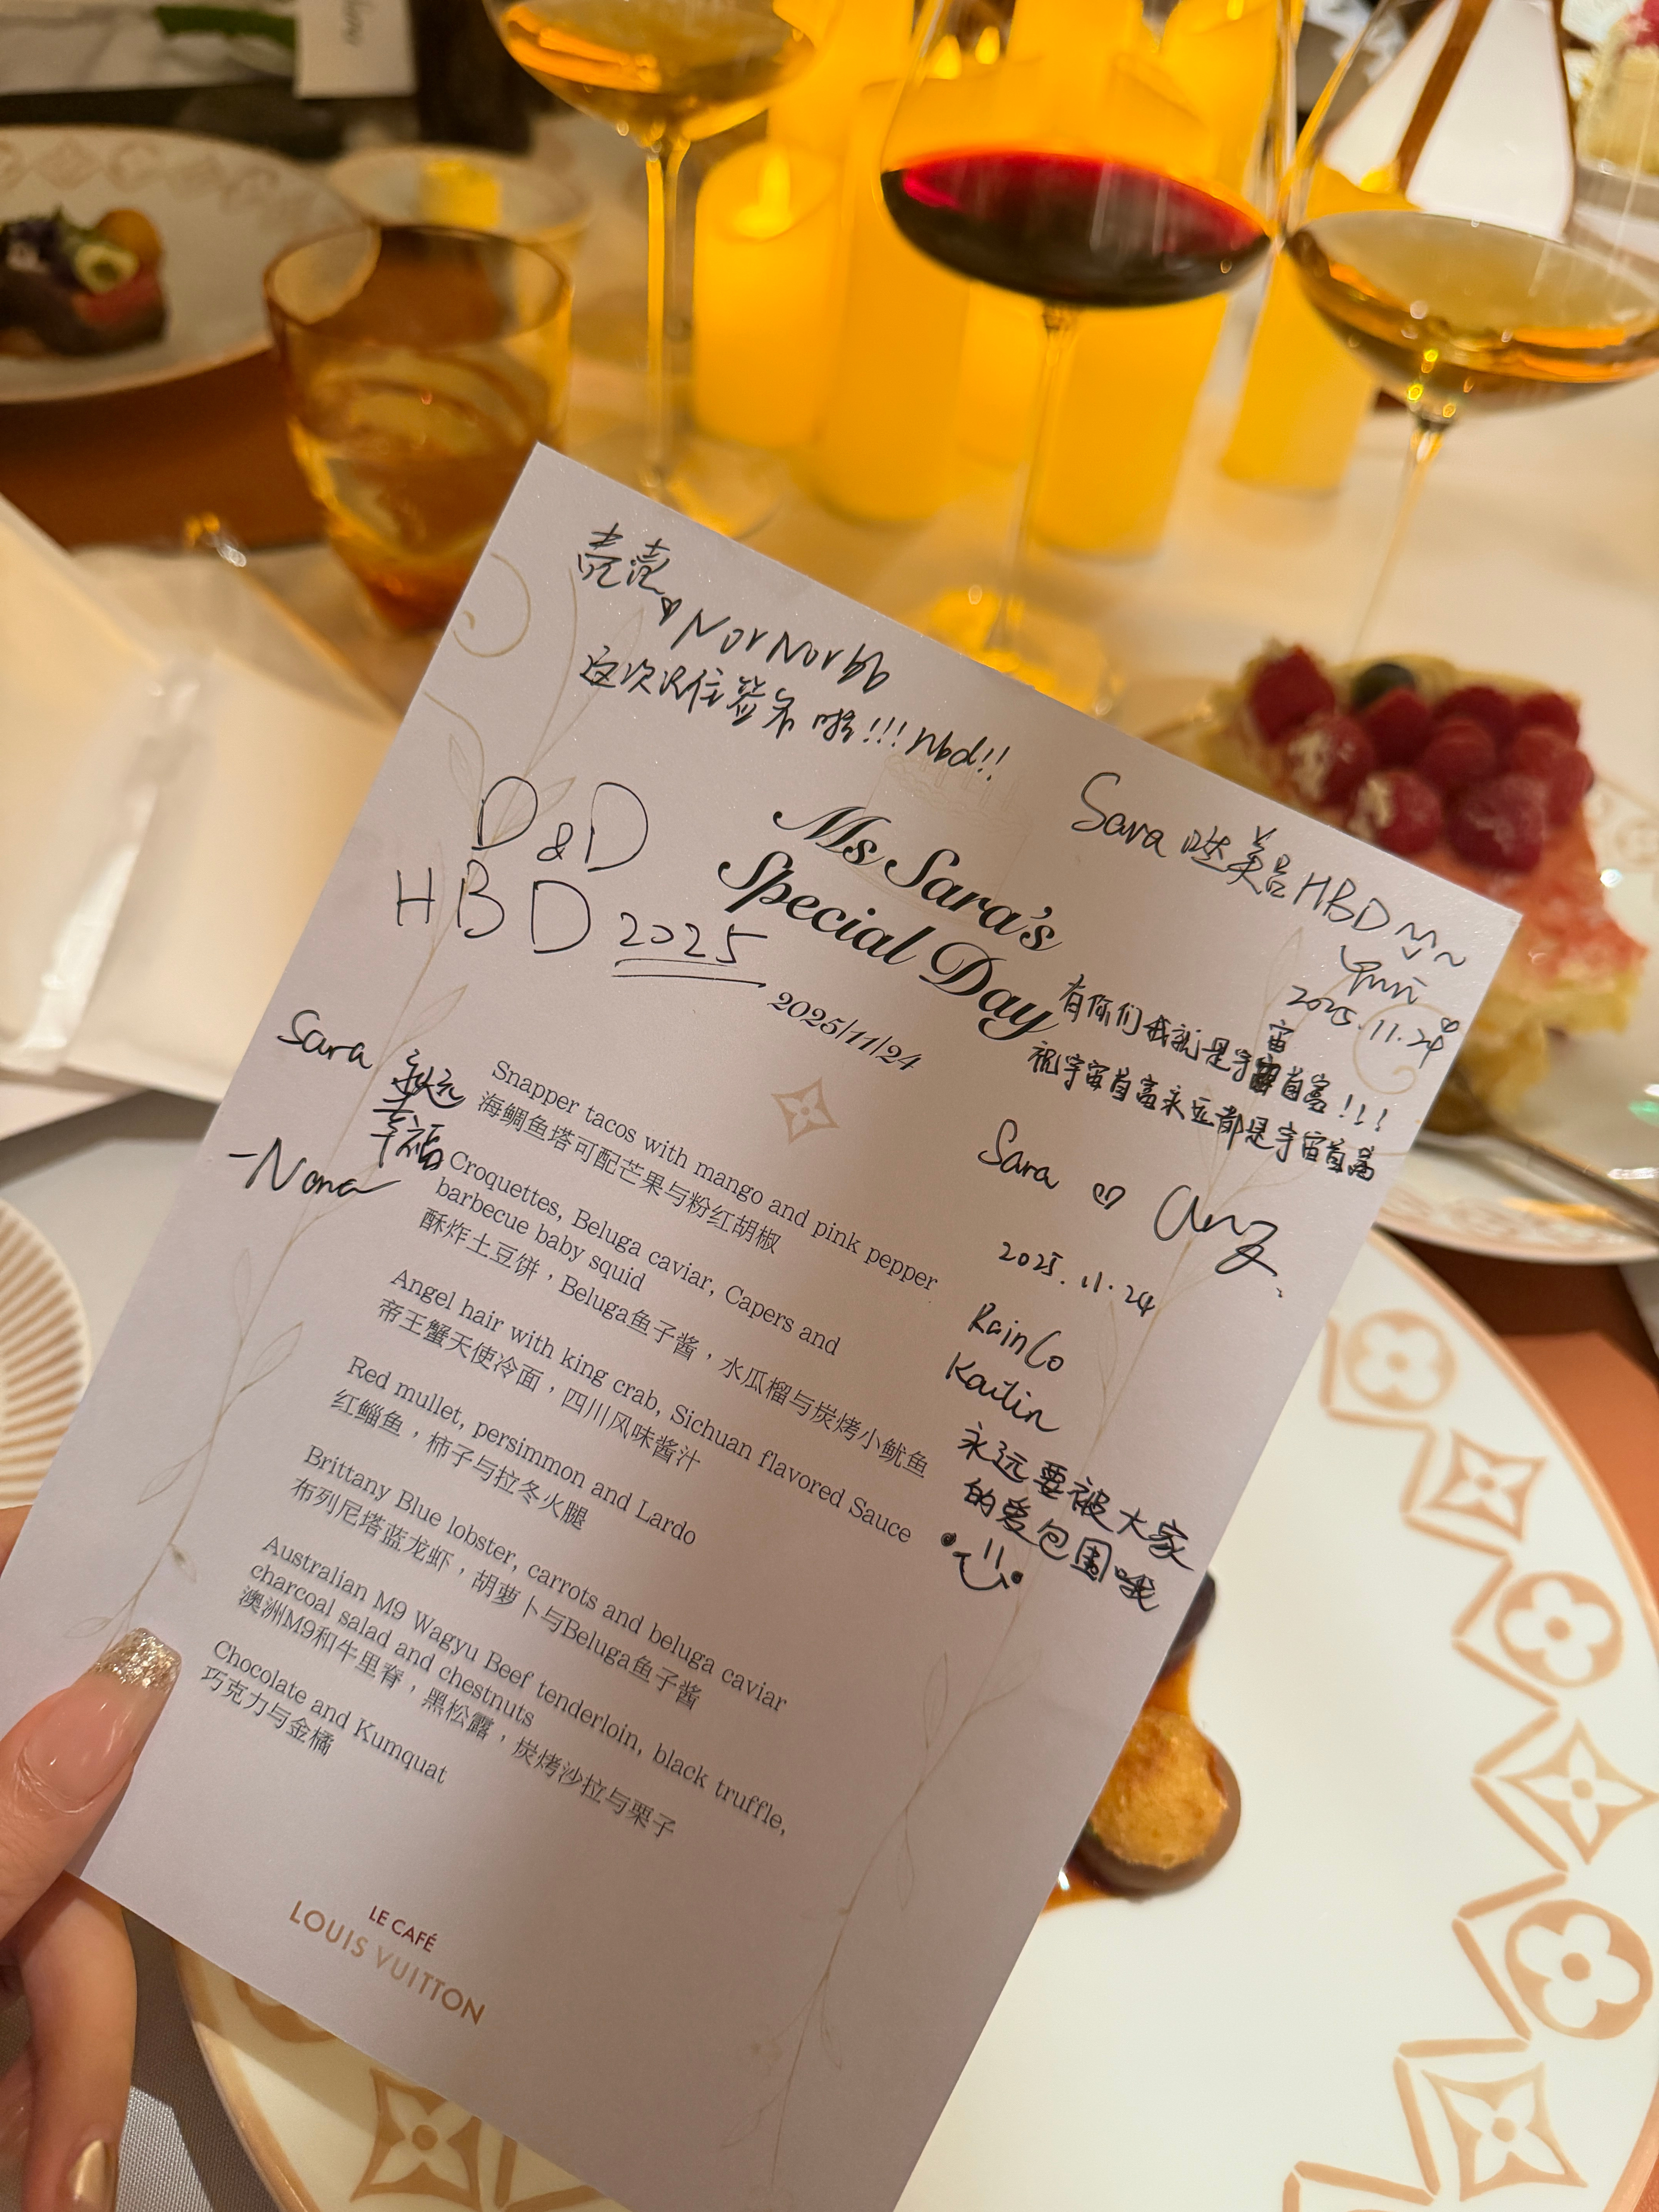 壳壳
NorNorbb
这次记住签名啦!!! Nbd!!
D&D
HBD 2025
Ms Sara's
Special Day
2025/11/24
Sara 哒美吕 HBD
2025.11.24
有你们我就是宇宙首富!!!
祝宇宙首富永远都是宇宙首富
Sara
永远
幸福
-Nona
Sara
2025.11.24
RainCo
Kailin
永远要被大家
的爱包围哦
Snapper tacos with mango and pink pepper
海鲷鱼塔可配芒果与粉红胡椒
Croquettes, Beluga caviar, Capers and
barbecue baby squid
酥炸土豆饼，Beluga鱼子酱，水瓜榴与炭烤小鱿鱼
Angel hair with king crab, Sichuan flavored Sauce
帝王蟹天使冷面，四川风味酱汁
Red mullet, persimmon and Lardo
红鲻鱼，柿子与拉冬火腿
Brittany Blue lobster, carrots and beluga caviar
布列尼塔蓝龙虾，胡萝卜与Beluga鱼子酱
Australian M9 Wagyu Beef tenderloin, black truffle,
charcoal salad and chestnuts
澳洲M9和牛里脊，黑松露，炭烤沙拉与栗子
Chocolate and Kumquat
巧克力与金橘
LE CAFÉ
LOUIS VUITTON